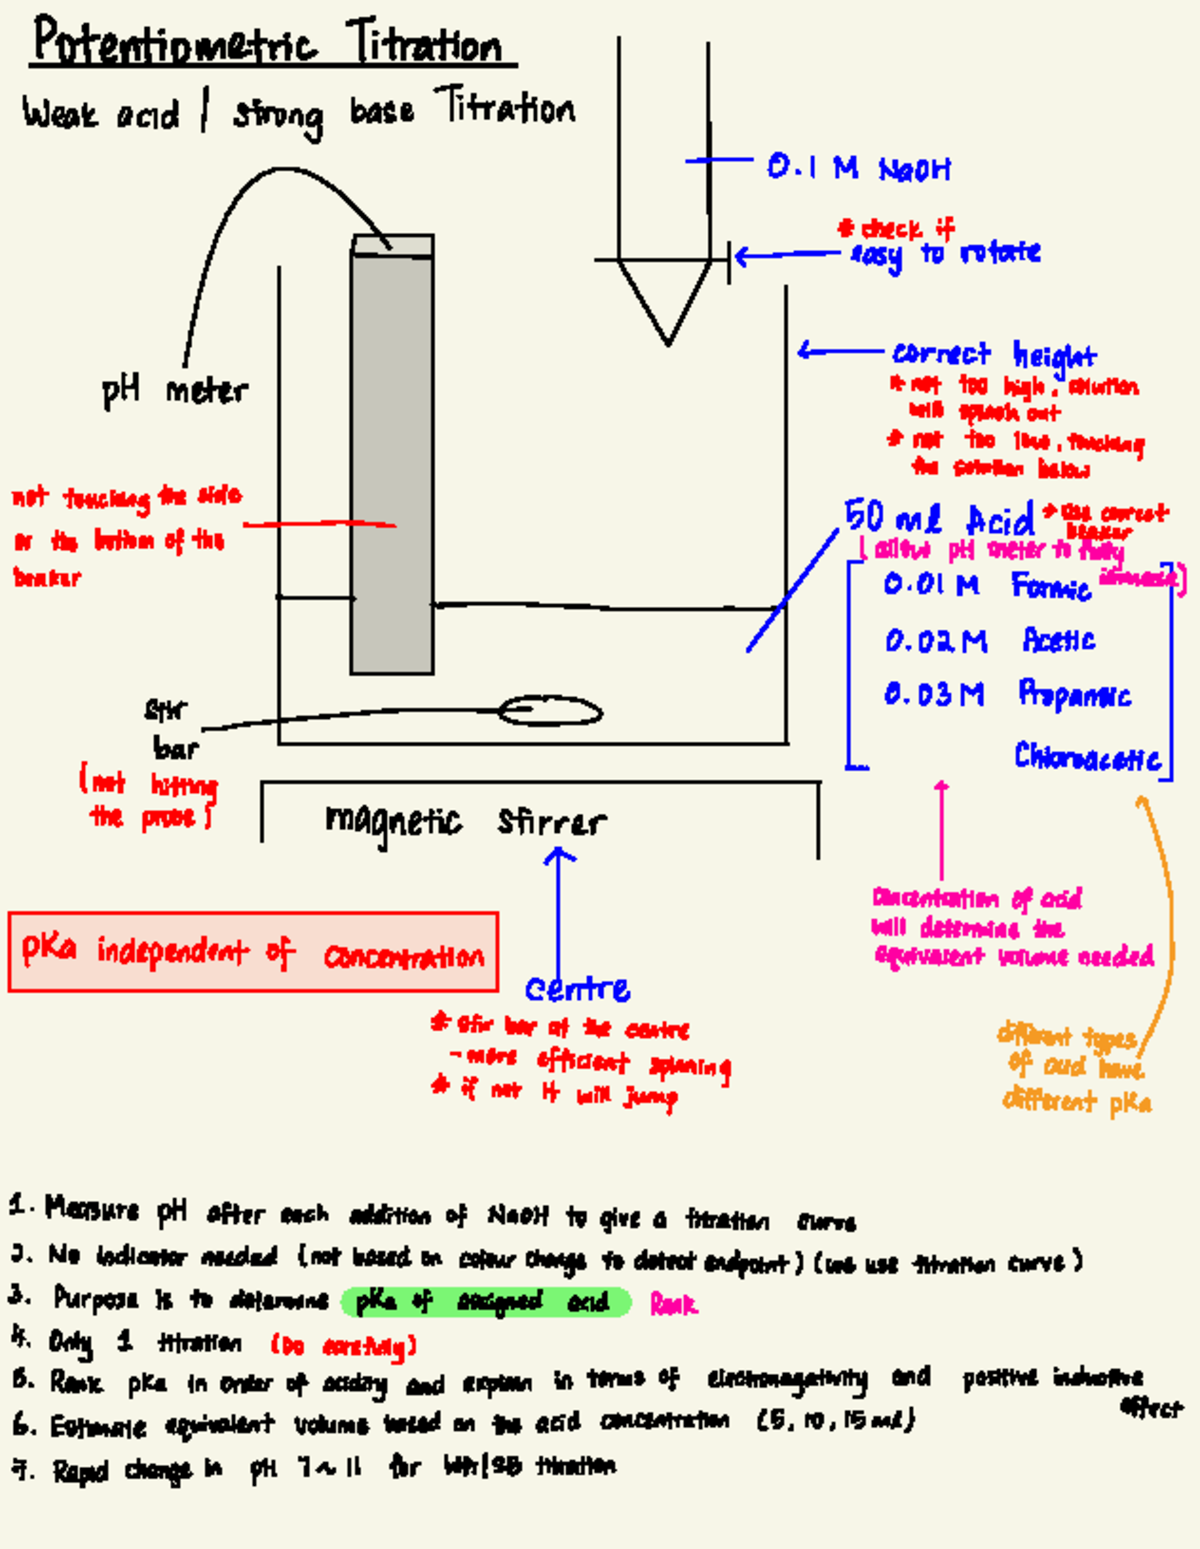 Potentiometric Titration
Weak acid / strong base Titration
0.1 M NaOH
* check if
easy to rotate
pH meter
correct height
* not too high, solution
will splash out
* not too low, touching
the solution below
not touching the side
or the bottom of the
beaker
50 ml Acid
* use correct
beaker
(allow pH meter to fully
immerse)
0.01 M Formic
0.02 M Acetic
0.03 M Propanoic
Chloroacetic
stir
bar
(not hitting
the probe)
magnetic stirrer
concentration of acid
will determine the
equivalent volume needed
pKa independent of concentration
centre
* stir bar at the centre
- more efficient spinning
* if not it will jump
different types
of acid have
different pKa
1. Measure pH after each addition of NaOH to give a titration curve
2. No indicator needed (not based on colour change to detect endpoint) (we use titration curve)
3. Purpose is to determine pKa of assigned acid Rank
4. Only 1 titration (Do carefully)
5. Rank pKa in order of acidity and explain in terms of electronegativity and positive inductive
effect
6. Estimate equivalent volume based on the acid concentration (5, 10, 15 ml)
7. Rapid change in pH 7~11 for WA/SB titration